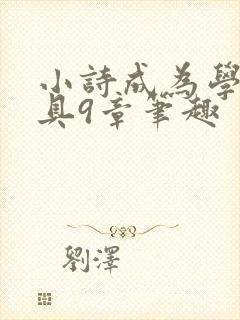 小詩成為學
具9章筆趣
劉澤